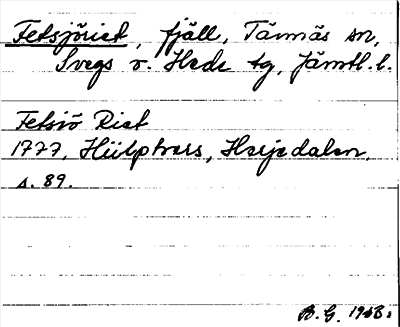 Fetsjöriet, fjäll, Tännäs sn,
Svegs o. Hede tg, Jämtl. l.
Fetsiö Riet
1777, Hülphers, Herjedalen,
s. 89.
B.G. 1968.